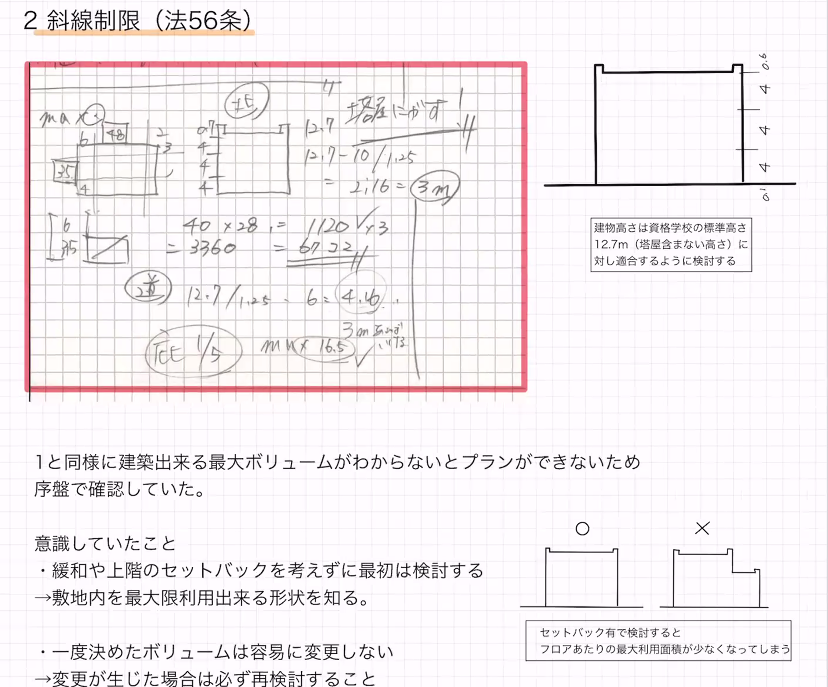 2 斜線制限（法56条）
max③
北
塔屋にがす!
6
48
2
3
35
4
0.7
4
4
4
12.7
12.7-10/1.25
= 2.16 = 3m
6
35
40 × 28 = 1120 ✓ ×3
= 3360 = 6722
道
12.7/1.25 - 6 = 4.16
3m
1/5
max 16.5
✓
0.6
4
4
4
0.1
建物高さは資格学校の標準高さ
12.7m（塔屋含まない高さ）に
対し適合するように検討する
1と同様に建築出来る最大ボリュームがわからないとプランができないため
序盤で確認していた。
意識していたこと
・緩和や上階のセットバックを考えずに最初は検討する
→敷地内を最大限利用出来る形状を知る。
・一度決めたボリュームは容易に変更しない
→変更が生じた場合は必ず再検討すること
○ ×
セットバック有で検討すると
フロアあたりの最大利用面積が少なくなってしまう